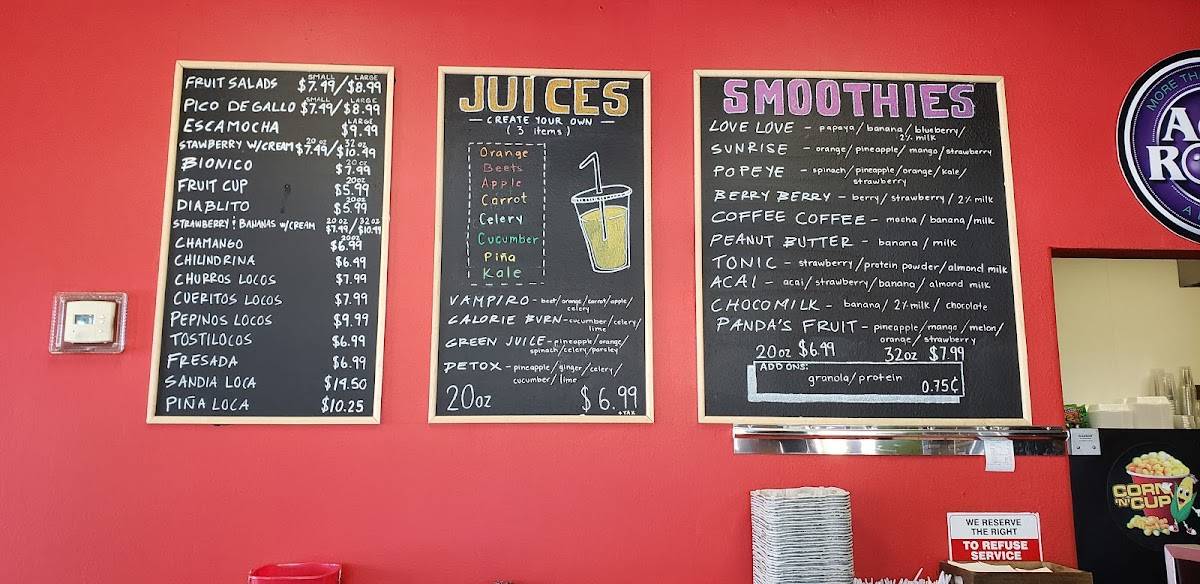 SMALL LARGE
FRUIT SALADS $7.49/$8.99
SMALL LARGE
PICO DE GALLO $7.49/$8.99
LARGE
ESCAMOCHA $9.49
20 oz 32 oz
STAWBERRY W/CREAM $7.49/$10.49
20 oz
BIONICO $7.99
20oz
FRUIT CUP $5.99
20oz
DIABLITO $5.99
20 oz / 32 oz
STRAWBERRY & BANANAS W/CREAM $7.99/$10.99
20oz
CHAMANGO $6.99
CHILINDRINA $6.49
CHURROS LOCOS $7.99
CUERITOS LOCOS $7.99
PEPINOS LOCOS $9.99
TOSTILOCOS $6.99
FRESADA $6.99
SANDIA LOCA $19.50
PIÑA LOCA $10.25
JUICES
— CREATE YOUR OWN —
( 3 items )
Orange
Beets
Apple
Carrot
Celery
Cucumber
Piña
Kale
VAMPIRO - beet/orange/carrot/apple/
celery
CALORIE BURN - cucumber/celery/
lime
GREEN JUICE - pineapple/orange/
spinach/celery/parsley
DETOX - pineapple/ginger/celery/
cucumber/lime
20oz $6.99
+TAX
SMOOTHIES
LOVE LOVE - papaya/banana/blueberry/
2% milk
SUNRISE - orange/pineapple/mango/strawberry
POPEYE - spinach/pineapple/orange/kale/
strawberry
BERRY BERRY - berry/strawberry/2% milk
COFFEE COFFEE - mocha/banana/milk
PEANUT BUTTER - banana/milk
TONIC - strawberry/protein powder/almond milk
ACAI - acai/strawberry/banana/almond milk
CHOCOMILK - banana/2% milk/chocolate
PANDA'S FRUIT - pineapple/mango/melon/
orange/strawberry
20oz $6.99 32oz $7.99
ADD ONS:
granola/protein 0.75¢
MORE TH
CORN
'N' CUP
WE RESERVE
THE RIGHT
TO REFUSE
SERVICE